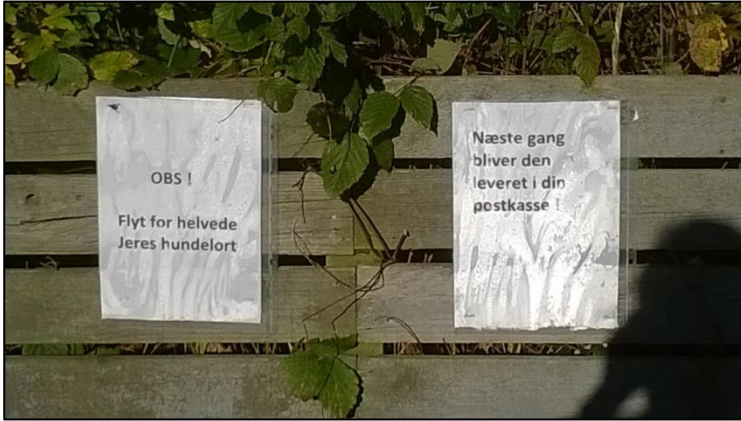 OBS !
Flyt for helvede
Jeres hundelort
Næste gang
bliver den
leveret i din
postkasse !